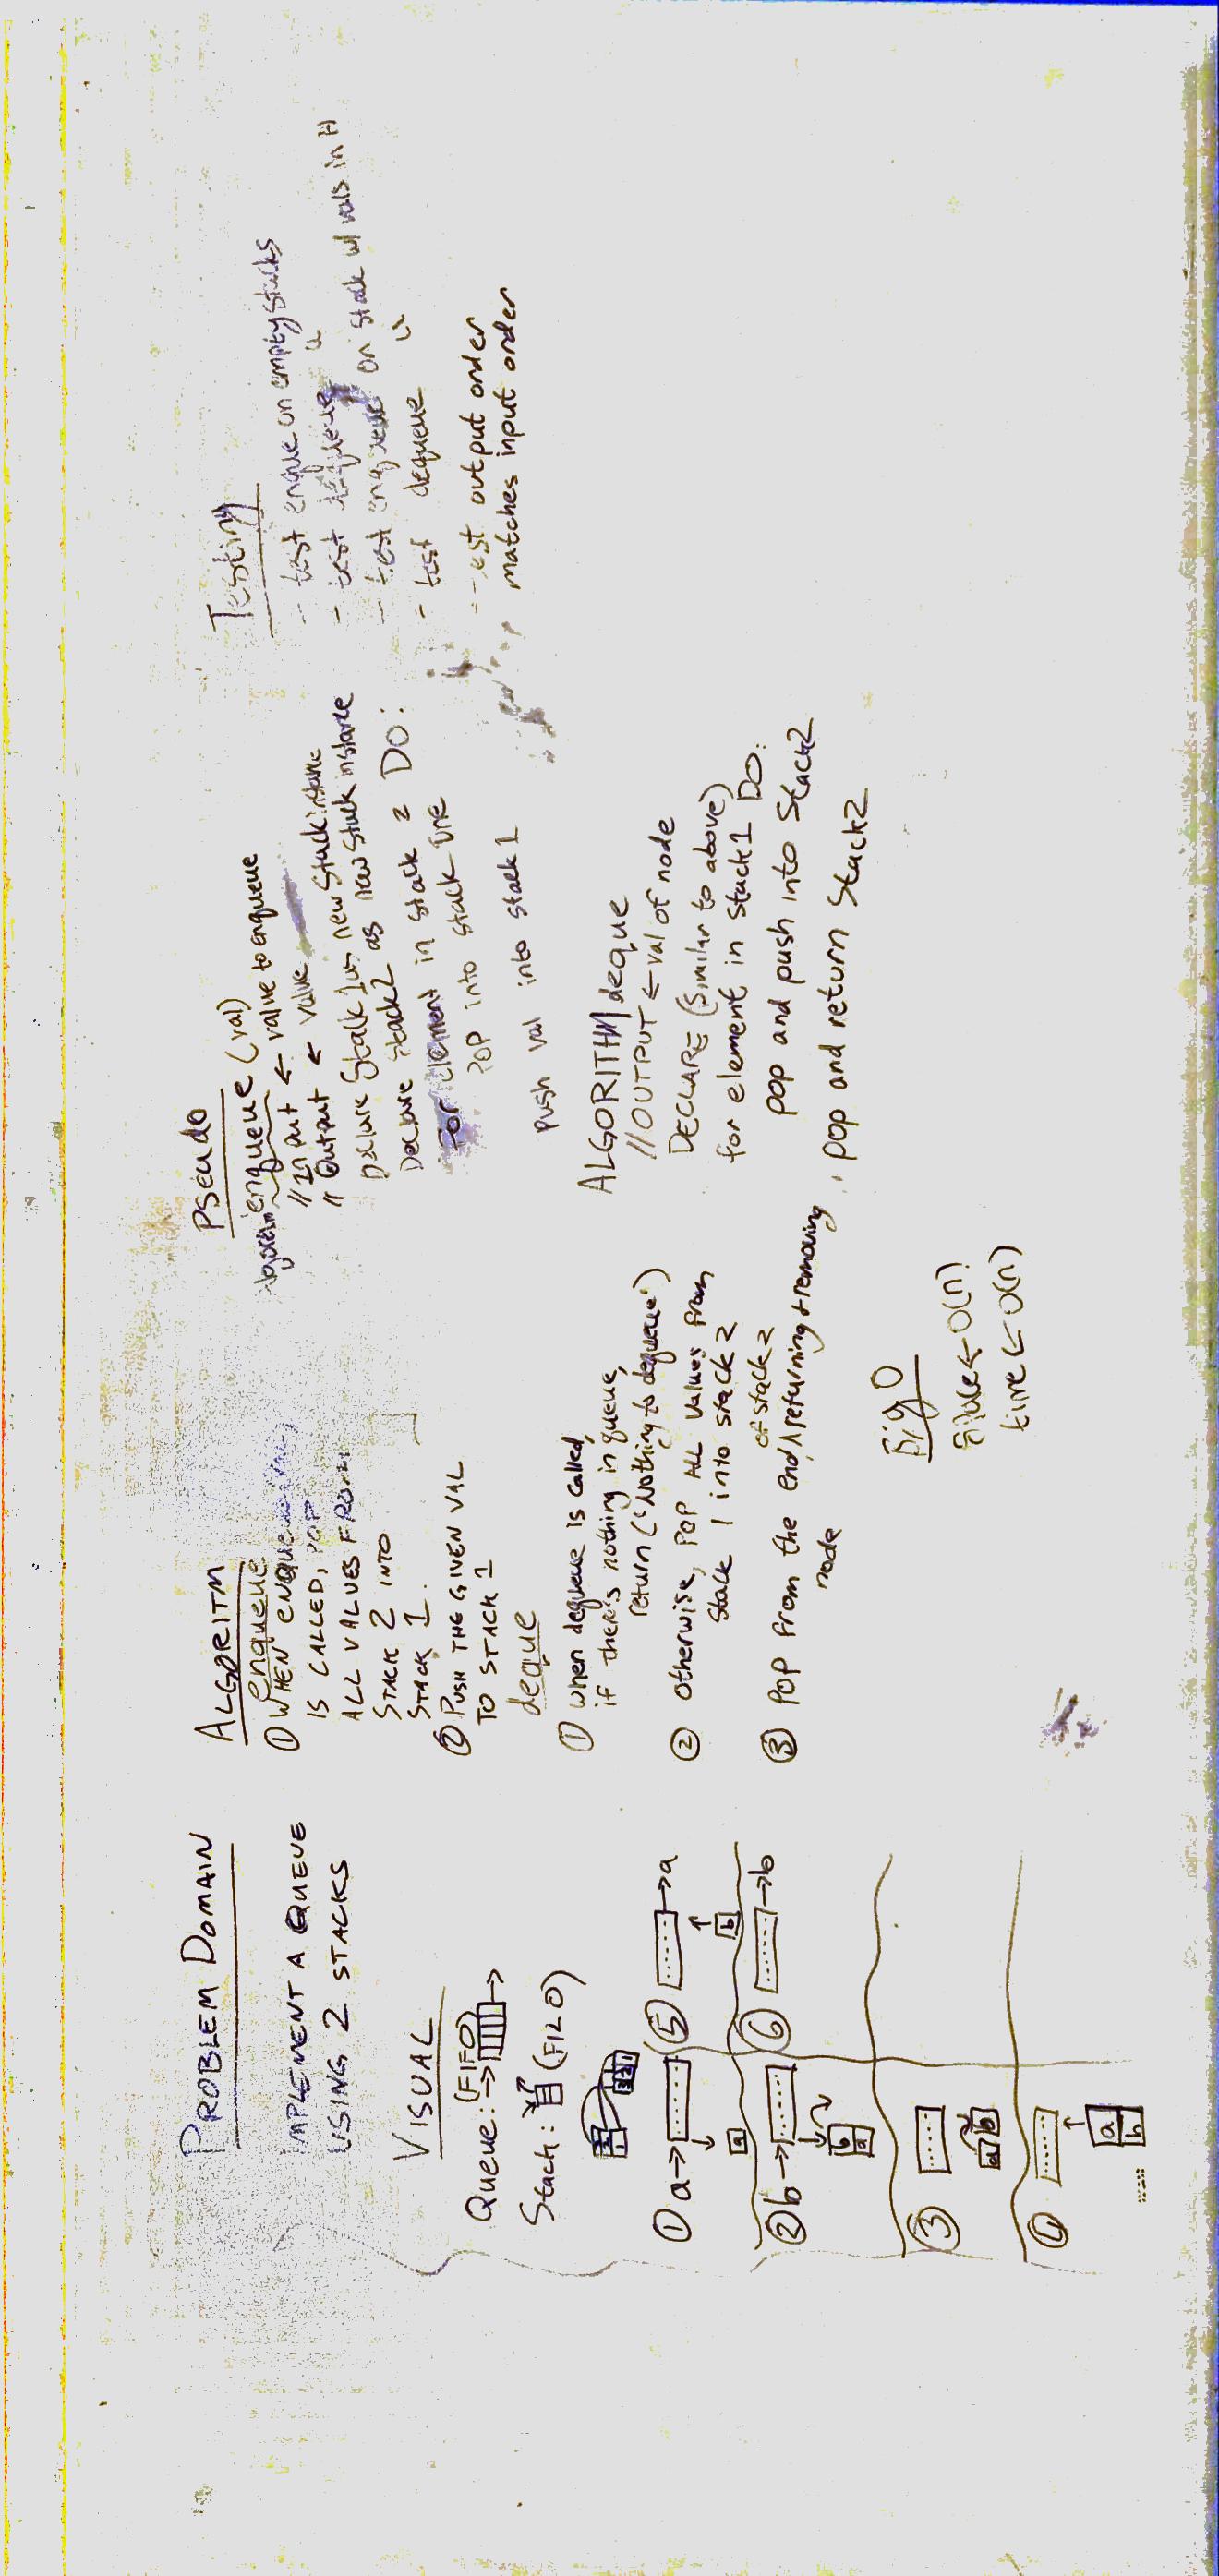 PROBLEM DOMAIN
IMPLEMENT A QUEUE
USING 2 STACKS
VISUAL
Queue: (FIFO)
Stack: (FILO)
① a→
a
② b→
b
a
③
a b
④
a
b
⑤ →a
b
⑥ →b
ALGORITM
enqueue
① WHEN ENQUEUE (VAL)
IS CALLED, POP
ALL VALUES FROM
STACK 2 INTO
STACK 1.
② PUSH THE GIVEN VAL
TO STACK 1
deque
① when dequeue is called,
if there's nothing in queue,
return ("Nothing to dequeue")
② otherwise, POP ALL values from
stack 1 into stack 2
③ POP from the end of stack 2, returning + removing
node
Big O
→ O(n)
time ← O(n)
Pseudo
algorithm enqueue (val)
// Input ← value to enqueue
// Output ← value
Declare Stack 1 as new Stack instance
Declare stack2 as new stack instance
For element in stack 2 DO:
POP into stack one
push val into stack1
ALGORITHM deque
// OUTPUT ← val of node
DECLARE (similar to above)
for element in stack1 DO:
pop and push into stack2
pop and return stack2
Testing
- test enque on empty stacks
- test dequeue "
- test enqueue on stack w/ vals in it
- test dequeue "
- test output order
matches input order